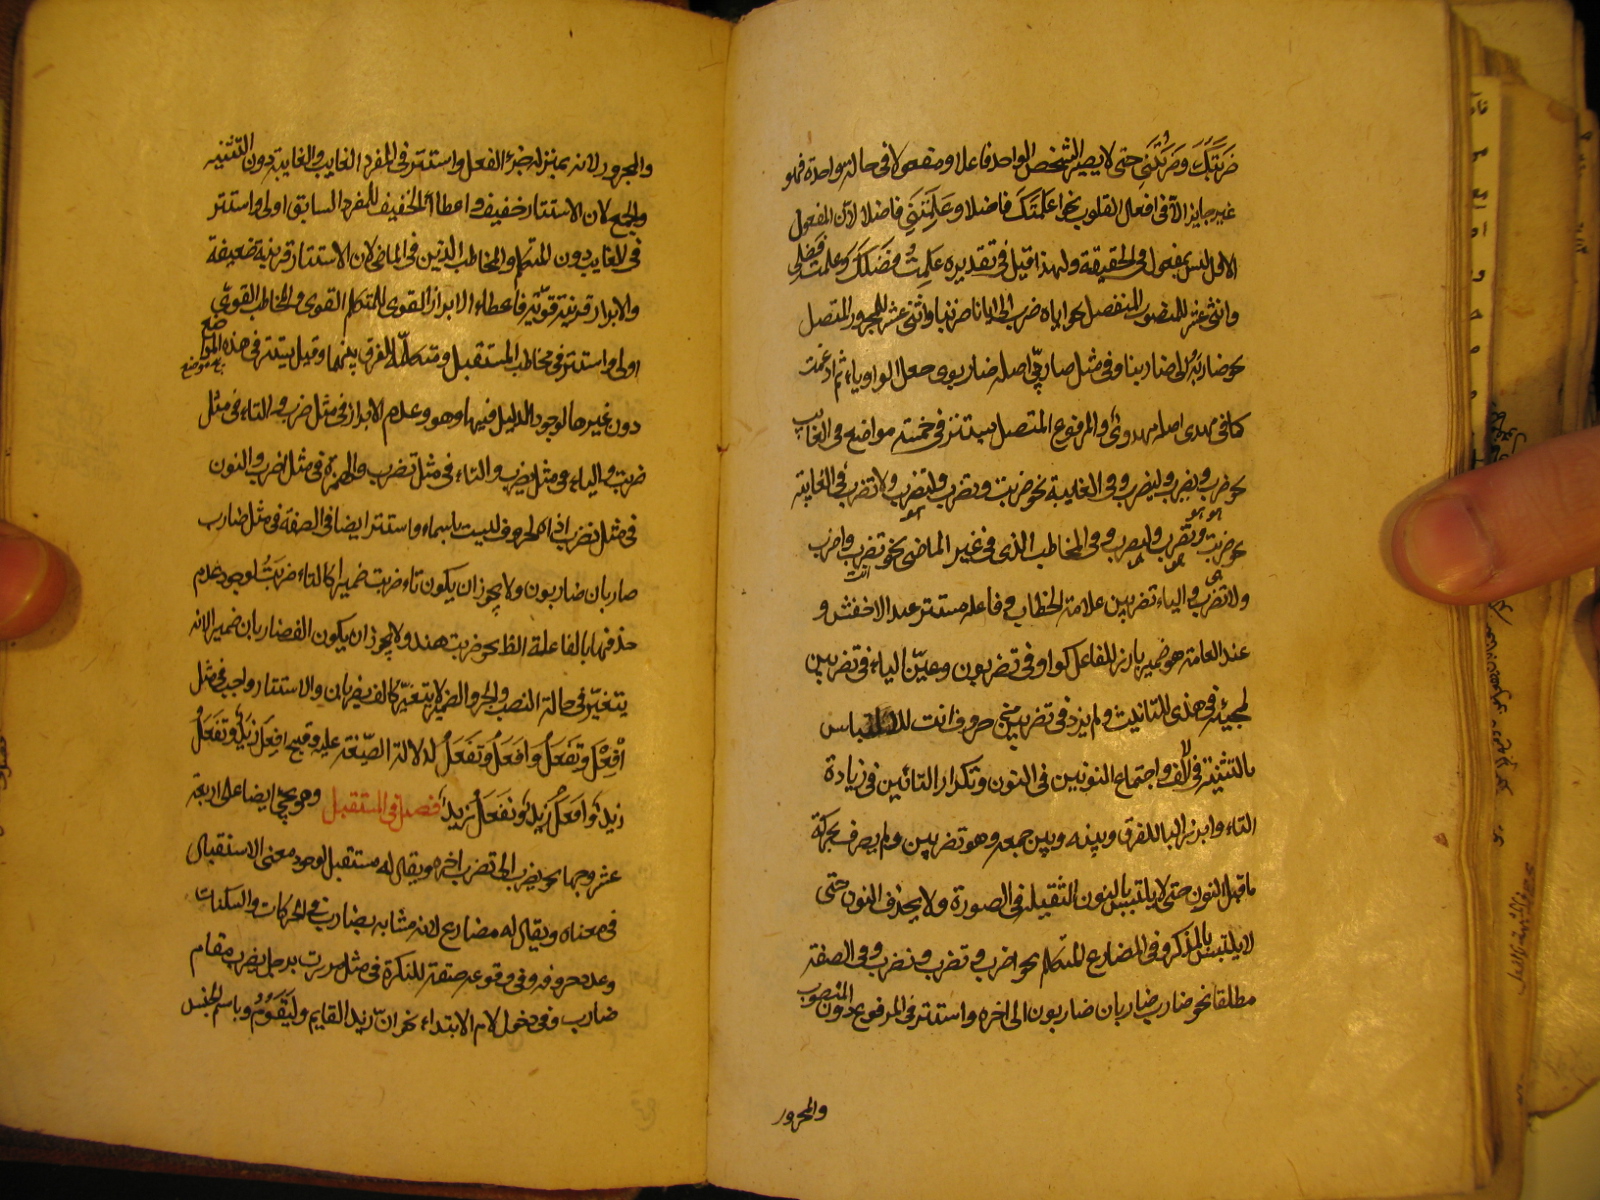 ضَرَبْتَكَ وَضَرَبْتُنِي حتى لا يصير الشخص الواحد فاعلا ومفعولا في حالة واحدة فهو
غير جايز الا في افعال القلوب نحو اعلمتَكَ فاضلا وعَلِمْتُنِي فاضلا لان المفعول
الاول ليس بمفعول في الحقيقة ولهذا قيل في تقديره علمتُ فضلَكَ وعلمتُ فضلي
واثنى عشر للمنصوب المنفصل نحو اياه ضرب الى ايانا ضربنا واثنى عشر للمجرور المتصل
نحو ضاربُهُ الى ضاربنا وفي مثل ضاربيّ اصله ضاربوى جعل الواو ياء ثم ادغمت
كما في مهدى اصله مهدوى والمرفوع المتصل يستتر في خمسة مواضع في الغايب
نحو ضرب ويضرب وليضرب وفي الغايبة نحو ضربت وتضرب ولتضرب ولا تضرب في الغايبة
نحو ضربت وتضرب ولتضرب وفي المخاطب الذى في غير الماضي نحو تضرب واضرب
هو هو
انت
ولا تضرب والياء تضربين علامة الخطاب وفاعله مستتر عند الاخفش و
عند العامة هو ضمير بارز للفاعل كواو في تضربون وعيّن الياء في تضربين
لمجيئه في هذى للتانيث ولم يزد في تضربين من حروف انت للالتباس
بالتثنية في الالف واجتماع النونين في النون وتكرار التائين في زيادة
التاء وابرز اليا للفرق وبينه وبين جمعه وهو تضربين ولم يصرف بحركة
ما قبل النون حتى لا يلتبس بالنون الثقيلة في الصورة ولا يحذف النون حتى
لا يلتبس بالمذكر وفي المضارع المتكلم نحو اضرب وتضرب ونضرب وفي الصفة
مطلقا نحو ضارب ضاربان ضاربون الى اخره واستتر في المرفوع دون المنصوب
والمجرور
والمجرور لانه بمنزلة جزء الفعل واستتر في المفرد الغايب والغايبة دون التثنية
والجمع لان الاستتار خفيف واعطاء الخفيف للمفرد السابق اولى واستتر
في الغايب دون المتكلم والمخاطب الذين في الماضي لان الاستتار قرينة ضعيفة
والابراز قرينة قوية فاعطاء الابراز القوى للمتكلم القوى والمخاطب القوى
اولى واستتر في مخاطب المستقبل ومتكلمه للفرق بينهما وقيل يستتر في هذه المواضع
دون غيرها لوجود الدليل فيها وهو وعدم الابراز في مثل ضرب والتاء في مثل
ضربت والياء في مثل يضرب والتاء في مثل تضرب والهمزة في مثل اضرب والنون
في مثل نضرب اذ الحروف ليست باسماء واستتر ايضا في الصفة في مثل ضارب
ضاربان ضاربون ولا يجوز ان يكون تاء ضربت ضميرا كالتاء ضربتُ لوجود عدم
حذفها بالفاعلة الظ نحو ضربت هند ولا يجوز ان يكون الف ضاربان ضمير الانه
يتغيّر في حالة النصب والجر والضمير لا يتغيّر كالف يضربان والاستتار واجب في مثل
اِفْعَلْ وتَفْعَلُ وَاَفْعَلُ وتَفْعَلُ لدلالة الصّيغة عليه وقبيح افعل زيد وتفعل
زيد واَفْعَلُ زيد ونَفْعَلُ زيد فصل في المستقبل وهو يجئ ايضا على اربعة
عشر وجها نحو يضرب الى تضرب اخره ويقال له مستقبل لوجود معنى الاستقبال
في معناه ويقال له مضارع لانه مشابه بضارب في الحركات والسكنات
وعدد حروفه وفي وقوعه صفة للنكرة في مثل مررت برجل يضرب مقام
ضارب وفي دخول لام الابتداء نحو ان زيد القايم ولَيَقُومُ وباسم الجنس